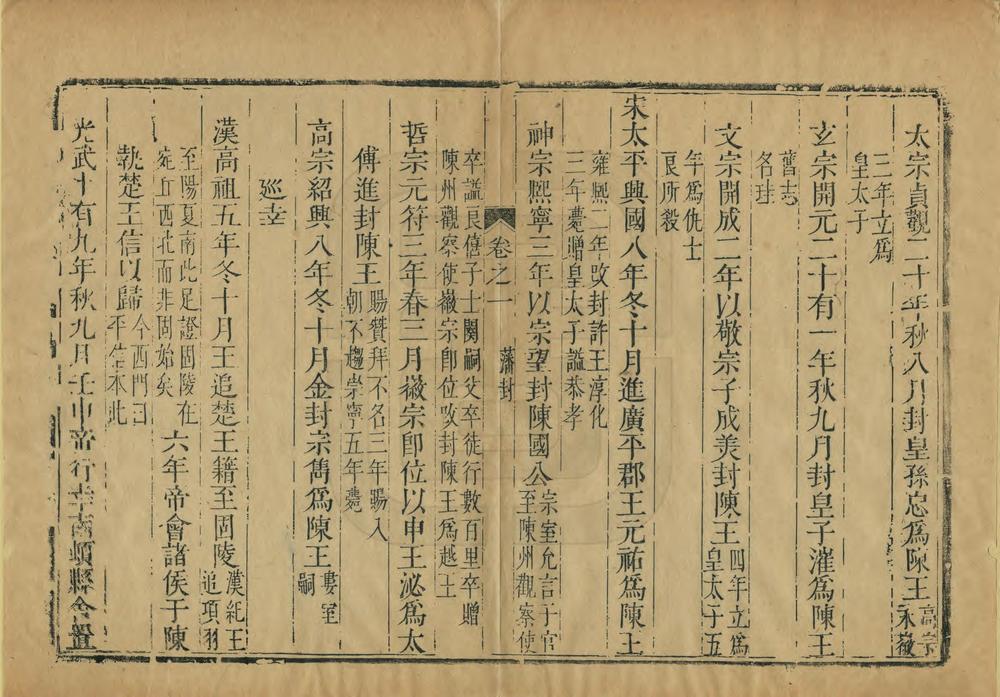 太宗貞觀二十年秋八月封皇孫忠爲陳王高宗永徽
三年立爲皇太子
玄宗開元二十有一年秋九月封皇子漼爲陳王
舊志名珪
文宗開成二年以敬宗子成美封陳王四年立爲皇太子五
年爲仇士良所殺
宋太平興國八年冬十月進廣平郡王元祐爲陳王
雍熙二年改封許王淳化三年薨贈皇太子謚恭孝
神宗熙寧三年以宗望封陳國公宗室允言于官至陳州觀察使
卷之一 藩封
卒謚良僖子士關嗣父卒徒行數百里卒贈陳州觀察使徽宗卽位改封陳王爲越王
哲宗元符三年春三月徽宗卽位以申王泌爲太
傅進封陳王賜贊拜不名三年賜入朝不趨崇寧五年薨
高宗紹興八年冬十月金封宗雋爲陳王婁室嗣
巡幸
漢高祖五年冬十月王追楚王籍至固陵漢紀王追項羽
至陽夏南此足證固陵在宛丘西北而非固始矣六年帝會諸侯于陳
執楚王信以歸今西門曰平信本此
光武十有九年秋九月壬申帝行幸南頓縣舍置